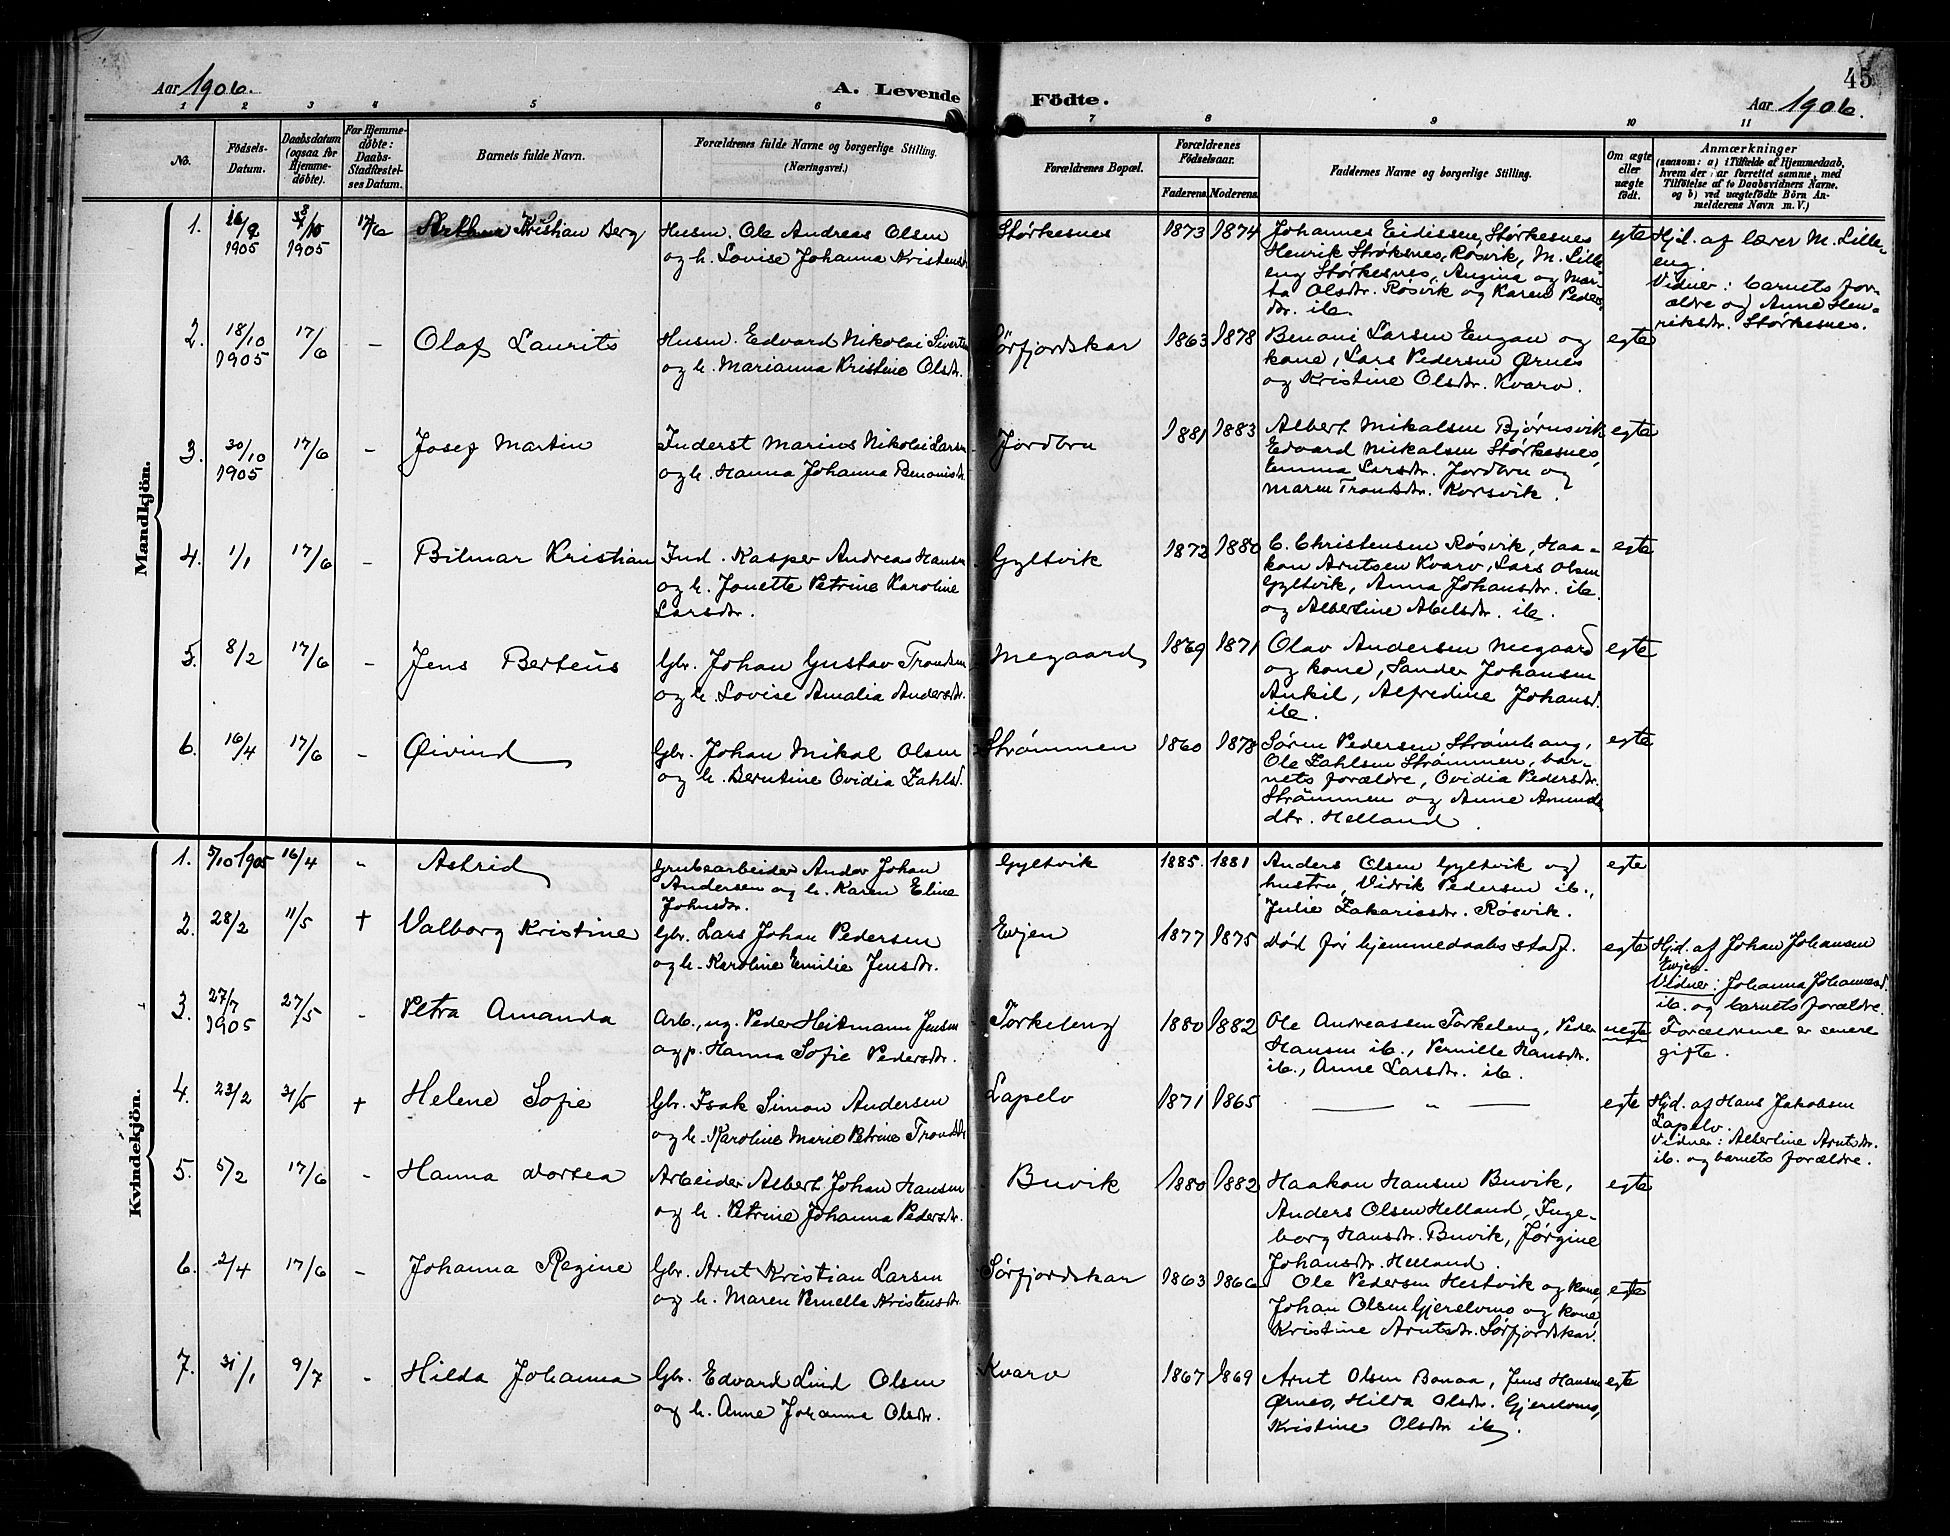 45
Aar 1906.
A. Levende Födte.
Aar 1906.
1 2 3 4 5 6 7 8 9 10 11
No.
Födsels-Datum.
Daabsdatum (ogsaa for Hjemme-döbte).
For Hjemme-döbte: Daabs-Stadfæstel-ses Datum.
Barnets fulde Navn.
Forældrenes fulde Navne og borgerlige Stilling.
(Næringsvei.)
Forældrenes Bopæl.
Forældrenes Födselsaar.
Faderens. Moderens.
Faddernes Navne og borgerlige Stilling.
Om ægte eller uægte födt.
Anmærkninger
(saasom: a) i Tilfælde af Hjemmedaab,
hvem der har forrettet samme, med
Tilföielse af to Daabsvidners Navne.
og b) ved uægtefödte Börn An-
melderens Navn m. V.)
Mandkjön.
1. 16/9 1905 1905 17/6 Arthur Kristian Berg
Husm. Ole Andreas Olsen
og h. Lovise Johanna Kristensdr
Størkesnes 1873 1874
Johannes Eidissen, Størkesnes
Henrik Strøksnes, Røsvik, M. Lille-
eng Størkesnes, Angina og Mar-
ta Olsdtr. Røsvik og Karen Peders-
dtr. ib.
egte
Hjd. af lærer M. Lille-
eng.
Vidner: barnets for-
ældre og Anne Hen-
riksdtr. Størkesnes.
2. 18/10 1905 17/6 - Olaf Laurits
Husm. Edvard Nikolai Sivertsen
og h. Marianna Kristine Olsdtr.
Sørfjordskar 1863 1878
Benoni Larsen Engan og
kone, Lars Pedersen Ørnes
og Kristine Olsdtr. Kvarv.
egte
3. 30/10 1905 17/6 - Josef Martin
Inderst Marius Nikolai Larsen
og h. Hanna Johanna Benonisdtr
Jordbru 1881 1883
Albert Mikalsen Bjørnsvik
Edvard Mikalsen Størkesnes,
Emma Larsdtr. Jordbru og
Maren Trondsdtr. Korsvik.
egte
4. 1/1 17/6 - Bilmar Kristian
Ind. Kasper Andreas Hansen
og h. Jonette Petrine Karoline
Larsdtr.
Gyltvik 1872 1880
C. Christensen Røsvik, Haa-
kon Arntsen Kvarv, Lars Olsen
Gyltvik, Anna Johansdtr. ib.
og Albertine Abelsdtr. ib.
egte
5. 8/2 17/6 - Jens Berteus
Gbr. Johan Gustav Trondsen
og h. Lovise Amalia Andersdtr.
Megaard 1869 1871
Olav Andersen Megaard
og kone, Sander Johansen
Ankil, Alfredine Johansd.
ib.
egte
6. 16/4 17/6 - Øivind
Gbr. Johan Mikal Olsen
og h. Berntine Ovidia Zahlsd.
Strømmen 1860 1878
Søren Pedersen Strømhaug,
Ole Zahlsen Strømmen, bar-
nets forældre, Ovidia Pedersdtr.
Strømmen og Anne Amunds-
dtr. Helland
egte
Kvindekjön.
1. 5/10 1905 16/4 - Astrid
Grubearbeider Andor Johan
Andersen og h. Karen Eline
Johnsdtr.
Gyltvik 1885. 1881
Anders Olsen Gyltvik og
hustru, Vidrik Pedersen ib.,
Julie Zakariasdtr. Røsvik.
egte
2. 28/2 11/5 † Valborg Kristine
Gbr. Lars Johan Pedersen
og h. Karoline Emilie Jensdtr.
Evjen 1877 1875
Død før hjemmedaabs stadf.
egte
Hjd. af Johan Johansen
Evjen.
Vidner: Johanna Johannesd.
ib. og barnets forældre.
3. 27/7 1905 27/5 - Petra Amanda
Arb., ug. Peder Heitmann Jensen
og p. Hanna Sofie Pedersdtr.
Torkeleng 1880 1882
Ole Andreassen Torkeleng, Peder
Hansen ib., Pernille Hansdtr.
ib., Anne Larsdtr. ib.
uegte
Forældrene er senere
gifte.
4. 23/2 31/5 † Helene Sofie
Gbr. Isak Simon Andersen
og h. Karoline Marie Petrine Trondsdtr
Lapelv 1871 1865
— " —
egte
Hjd. af Hans Jakobsen
Lapelv.
Vidner: Albertine Arntsdtr.
ib. og barnets forældre.
5. 5/2 17/6 - Hanna Dortea
Arbeider Albert Johan Hansen
og h. Petrine Johanna Pedersdtr.
Buvik 1880 1882
Haakon Hansen Buvik,
Anders Olsen Helland, Inge-
borg Hansdtr. Buvik, Jørgine
Johansdtr. Helland.
egte
6. 2/4 17/6 - Johanna Regine
Gbr. Arnt Kristian Larsen
og h. Maren Pernella Kristensdtr.
Sørfjordskar 1863 1866
Ole Pedersen Hestvik og kone,
Johan Olsen Gjerelvmo og kone,
Kristine Arntsdtr. Sørfjordskar.
egte
7. 31/1 9/7 - Hilda Johanna
Gbr. Edvard Lind Olsen
og h. Anne Johanna Olsdtr.
Kvarv 1867 1869
Arnt Olsen Bonaa, Jens Hansen
Ørnes, Hilda Olsdtr. Gjerelvmo,
Kristine Olsdtr ib.
egte